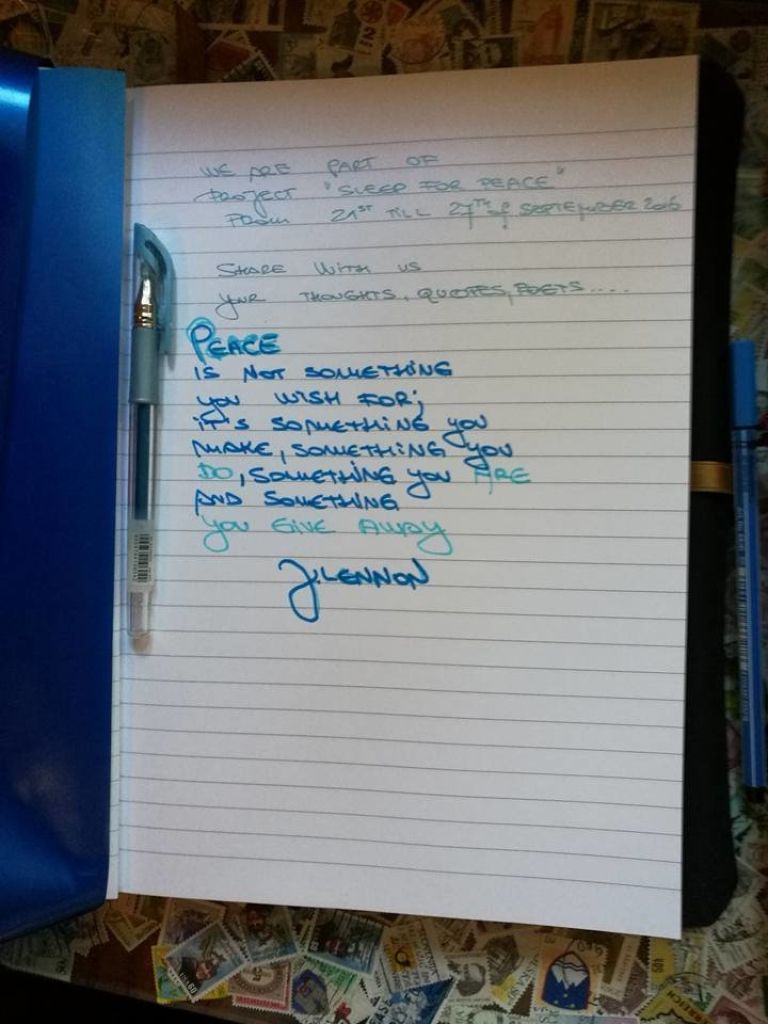 WE ARE PART OF
PROJECT "SLEEP FOR PEACE"
FROM 21ST TILL 27TH of SEPTEMBER 2016
SHARE WITH US
YOUR THOUGHTS, QUOTES, POETS....
PEACE
IS NOT SOMETHING
you WISH FOR;
IT'S SOMETHING you
MAKE, SOMETHING you
DO, SOMETHING you ARE
AND SOMETHING
you GIVE AWAY
J. LENNON